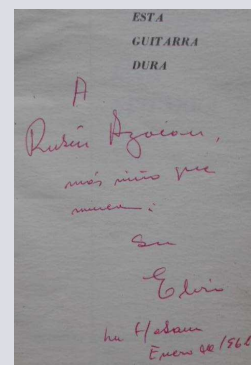 ESTA
GUITARRA
DURA
A
Rubén Azócar,
más niño que
nunca:
su
Elvio
La Habana
Enero de 196